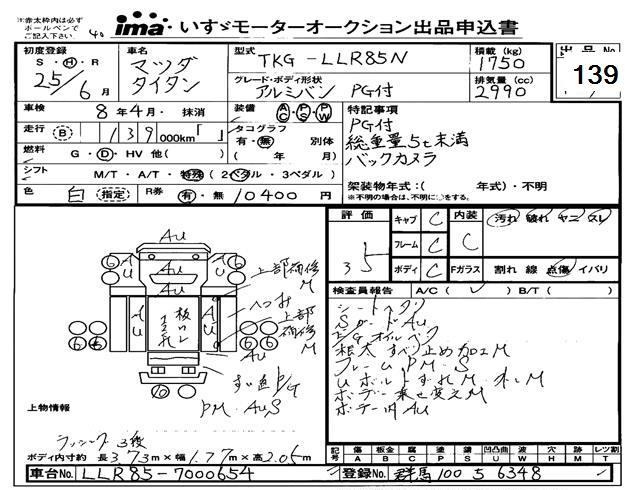 ※赤太枠内は必ず
ボールペンで
ご記入下さい
ima いすゞモーターオークション出品申込書
初度登録 S・H・R 25/6月
車名 マツダ タイタン
型式 TKG-LLR85N
積載(kg) 1750
出品No 139
グレード・ボディ形状 アルミバン PG付
排気量(cc) 2990
車検 8年4月・抹消
装備 AC PS PW
特記事項
PG付
総重量5t未満
バックカメラ
走行 B 139000km「 」
タコグラフ 有・無 別体
( 年 月)
燃料 G・D・HV 他( )
シフト M/T・A/T・特殊(2ペダル・3ペダル)
架装物年式:( 年式)・不明
※不明の場合は、不明に○をする。
色 白 (指定) R券 有・無 10400円
評価 3.5
キャブ C
フレーム C
ボディ C
内装 C
汚れ 破れ ヤニ スレ
Fガラス 割れ 線 点傷 イバリ
検査員報告 A/C( ✓ ) B/T( )
シートヘタリ
E/Gオイル
根太すべり止め加工M
フレームPM・S
ボデー乗せ変えM
ボデー内AU
AU
上部補修M
へこみ
上部補修M
PM AUS
上物情報
ラッシング3段
ボディ内寸約 長3.73m×幅1.77m×高2.05m
記号 傷A 板金B 腐C 塗P 錆S 凹凸曲U 波W 穴H 跡M レツ割T
車台No. LLR85-7000654
登録No. 群馬 100 さ 6348